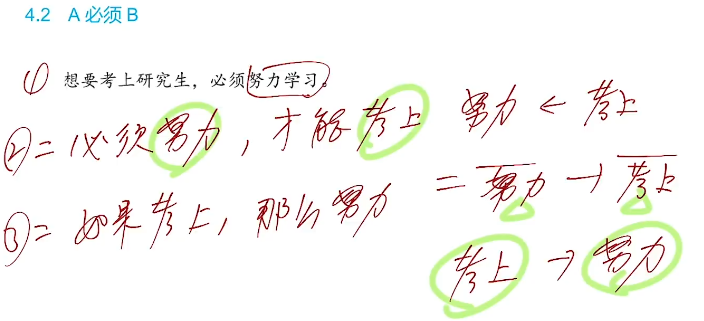 4.2 A 必须 B
① 想要考上研究生，必须努力学习。
②= 必须努力，才能考上 努力 ← 考上
= 努力 → 考上
③= 如果考上，那么努力
考上 → 努力